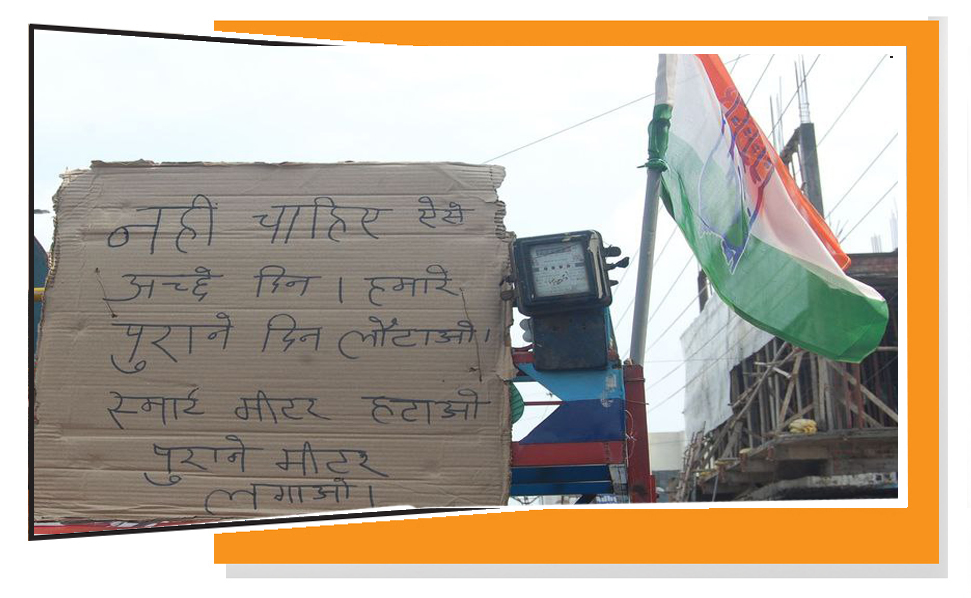 नहीं चाहिए ऐसे
अच्छे दिन । हमारे
पुराने दिन लौटाओ ।
स्मार्ट मीटर हटाओ
पुराने मीटर
लगाओ ।